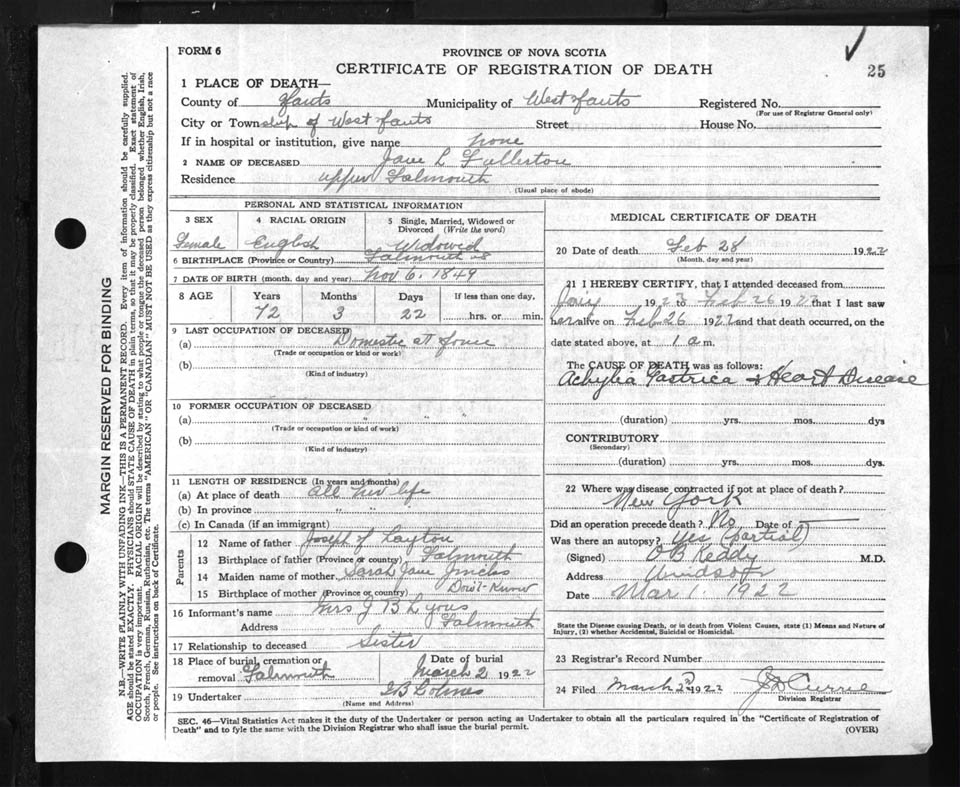 FORM 6
PROVINCE OF NOVA SCOTIA
CERTIFICATE OF REGISTRATION OF DEATH
25
1 PLACE OF DEATH—
County of Hants Municipality of West Hants Registered No.
(For use of Registrar General only)
City or Township of West Hants Street House No.
If in hospital or institution, give name none
2 NAME OF DECEASED Jane L Fullerton
Residence upper Falmouth
(Usual place of abode)
PERSONAL AND STATISTICAL INFORMATION
3 SEX 4 RACIAL ORIGIN 5 Single, Married, Widowed or Divorced (Write the word)
Female English Widowed
6 BIRTHPLACE (Province or Country) Falmouth NS
7 DATE OF BIRTH (month, day and year) Nov 6. 1849
8 AGE Years Months Days If less than one day,
72 3 22 hrs. or min.
9 LAST OCCUPATION OF DECEASED
(a) Domestic at Home
(Trade or occupation or kind or work)
(b)
(Kind of industry)
10 FORMER OCCUPATION OF DECEASED
(a) " "
(Trade or occupation or kind of work)
(b)
(Kind of industry)
11 LENGTH OF RESIDENCE (In years and months)
(a) At place of death all her life
(b) In province " " "
(c) In Canada (if an immigrant)
Parents
12 Name of father Joseph H Layton
13 Birthplace of father (Province or country) Falmouth
14 Maiden name of mother Sarah Jane
15 Birthplace of mother (Province or country) Don't Know
16 Informant's name Mrs J B Lyons
Address Falmouth
17 Relationship to deceased Sister
18 Place of burial, cremation or removal Falmouth
Date of burial March 2 1922
19 Undertaker
(Name and Address)
MEDICAL CERTIFICATE OF DEATH
20 Date of death Feb 28 1922
(Month, day and year)
21 I HEREBY CERTIFY, that I attended deceased from
1922 to Feb 26 1922 that I last saw
her alive on Feb 26 1922 and that death occurred, on the
date stated above, at 1 a m.
The CAUSE OF DEATH was as follows:
Achylia Gastrica & Heart Disease
(duration) yrs. mos. dys
CONTRIBUTORY
(Secondary)
(duration) yrs. mos. dys.
22 Where was disease contracted if not at place of death?
New York
Did an operation precede death? No Date of
Was there an autopsy? Yes (partial)
(Signed) O B Keddy M.D.
Address Windsor
Date Mar 1. 1922
State the Disease causing Death, or in death from Violent Causes, state (1) Means and Nature of
Injury, (2) whether Accidental, Suicidal or Homicidal.
23 Registrar's Record Number
24 Filed March 2nd 1922
Division Registrar
SEC. 46—Vital Statistics Act makes it the duty of the Undertaker or person acting as Undertaker to obtain all the particulars required in the "Certificate of Registration of
Death" and to fyle the same with the Division Registrar who shall issue the burial permit.
(OVER)
MARGIN RESERVED FOR BINDING
N.B.—WRITE PLAINLY WITH UNFADING INK—THIS IS A PERMANENT RECORD. Every item of information should be carefully supplied.
AGE should be stated EXACTLY. PHYSICIANS should STATE CAUSE OF DEATH in plain terms, so that it may be properly classified. Exact statement of
OCCUPATION is very important. RACIAL ORIGIN will be described by stating to what people or tongue the deceased person belonged whether English, Irish,
Scotch, French, German, Russian, Ruthenian, etc. The terms "AMERICAN" OR "CANADIAN" MUST NOT BE USED as they express citizenship but not a race
or people. See instructions on back of Certificate.